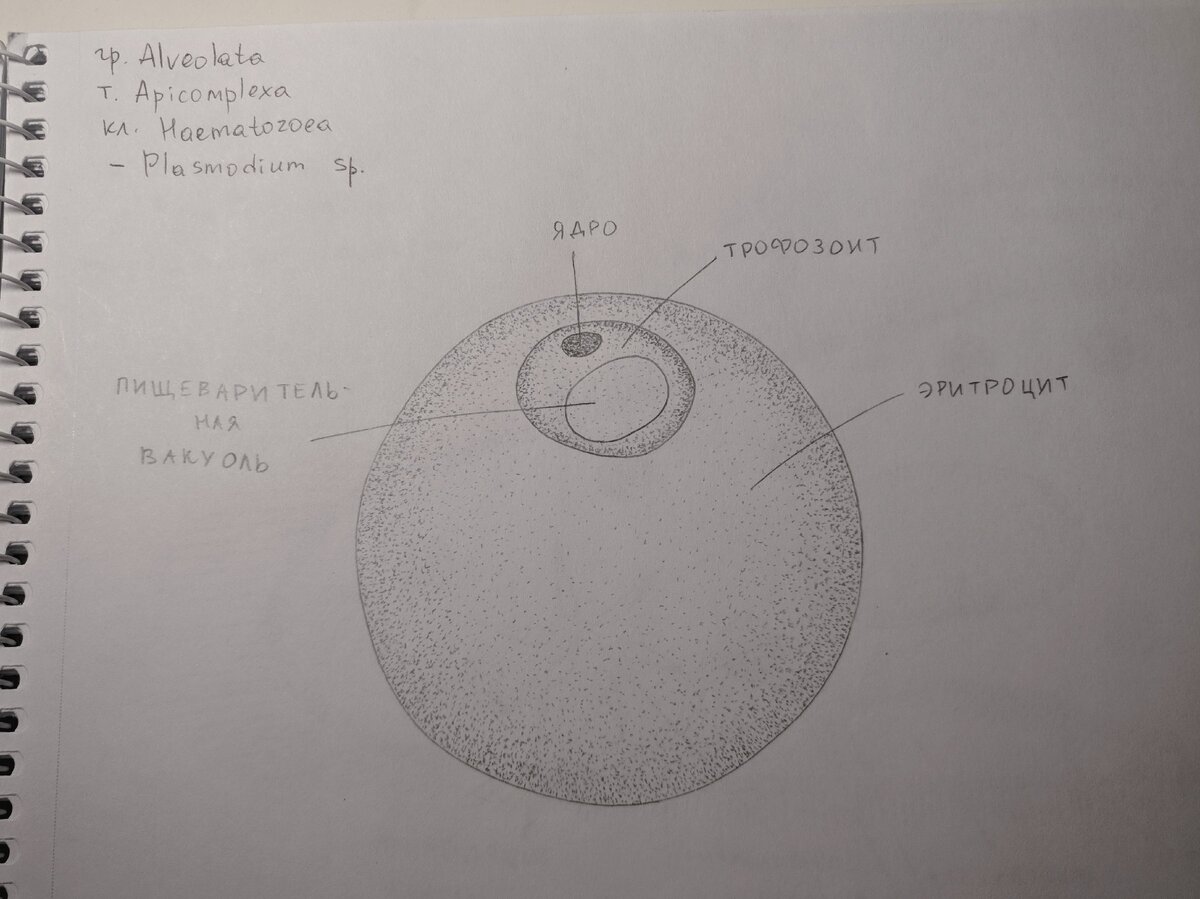 гр. Alveolata
т. Apicomplexa
кл. Haematozoea
- Plasmodium sp.
ЯДРО
ТРОФОЗОИТ
ПИЩЕВАРИТЕЛЬ-
НАЯ
ВАКУОЛЬ
ЭРИТРОЦИТ